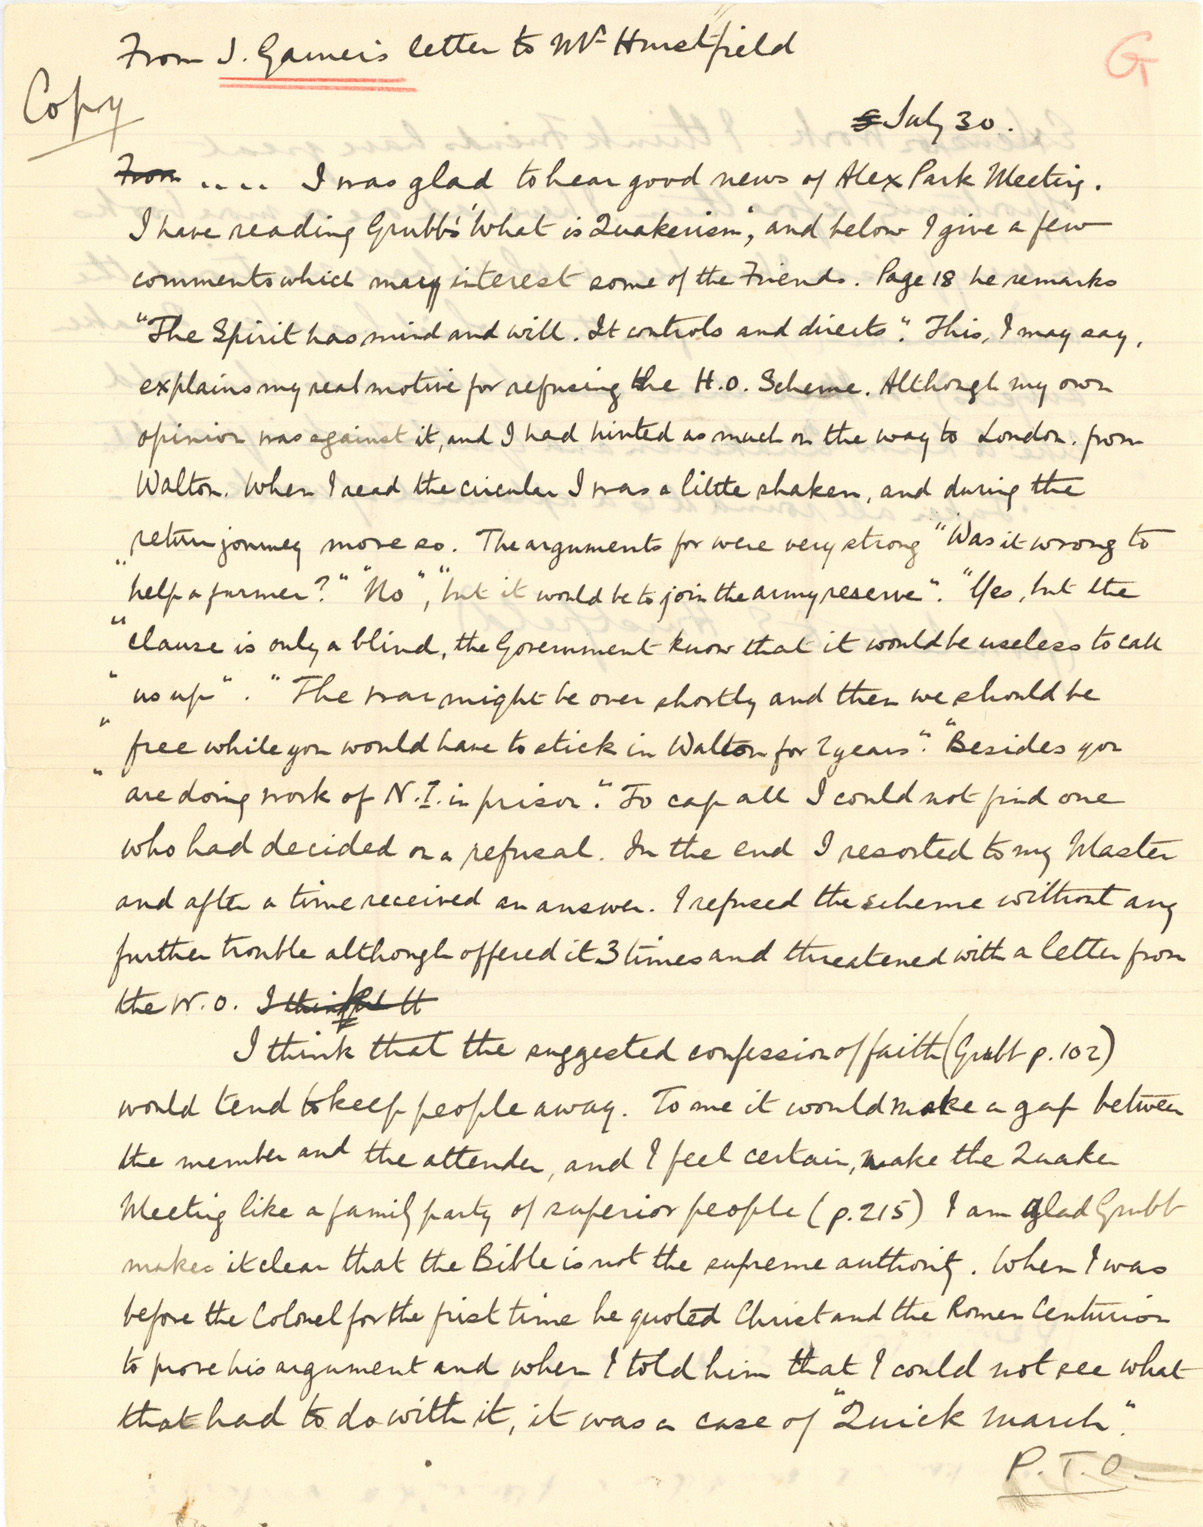 From J. Garner's letter to Mr Hurstfield
G
Copy
July 30.
From .... I was glad to hear good news of Alex Park Meeting.
I have reading Grubb's "What is Quakerism", and below I give a few
comments which may interest some of the Friends. Page 18 he remarks
"The Spirit has mind and will. It controls and directs". This, I may say,
explains my real motive for refusing the H.O. Scheme. Although my own
opinion was against it, and I had hinted as much on the way to London. from
Walton. When I read the circular I was a little shaken, and during the
return journey more so. The arguments for were very strong "Was it wrong to
"help a farmer?" "No", "but it would be to join the army reserve". "Yes, but the
"clause is only a blind, the Government know that it would be useless to call
"us up". "The war might be over shortly and then we should be
"free while you would have to stick in Walton for 2 years". "Besides you
"are doing work of N.I. in prison". To cap all I could not find one
who had decided on a refusal. In the end I resorted to my Master
and after a time received an answer. I refused the scheme without any
further trouble although offered it 3 times and threatened with a letter from
the W.O. I think
I think that the suggested confession of faith (Grubb p. 102)
would tend to keep people away. To me it would make a gap between
the member and the attender, and I feel certain, make the Quaker
Meeting like a family party of superior people (p. 215) I am glad Grubb
makes it clear that the Bible is not the supreme authority. When I was
before the Colonel for the first time he quoted Christ and the Roman Centurion
to prove his argument and when I told him that I could not see what
that had to do with it, it was a case of "Quick march".
P.T.O.